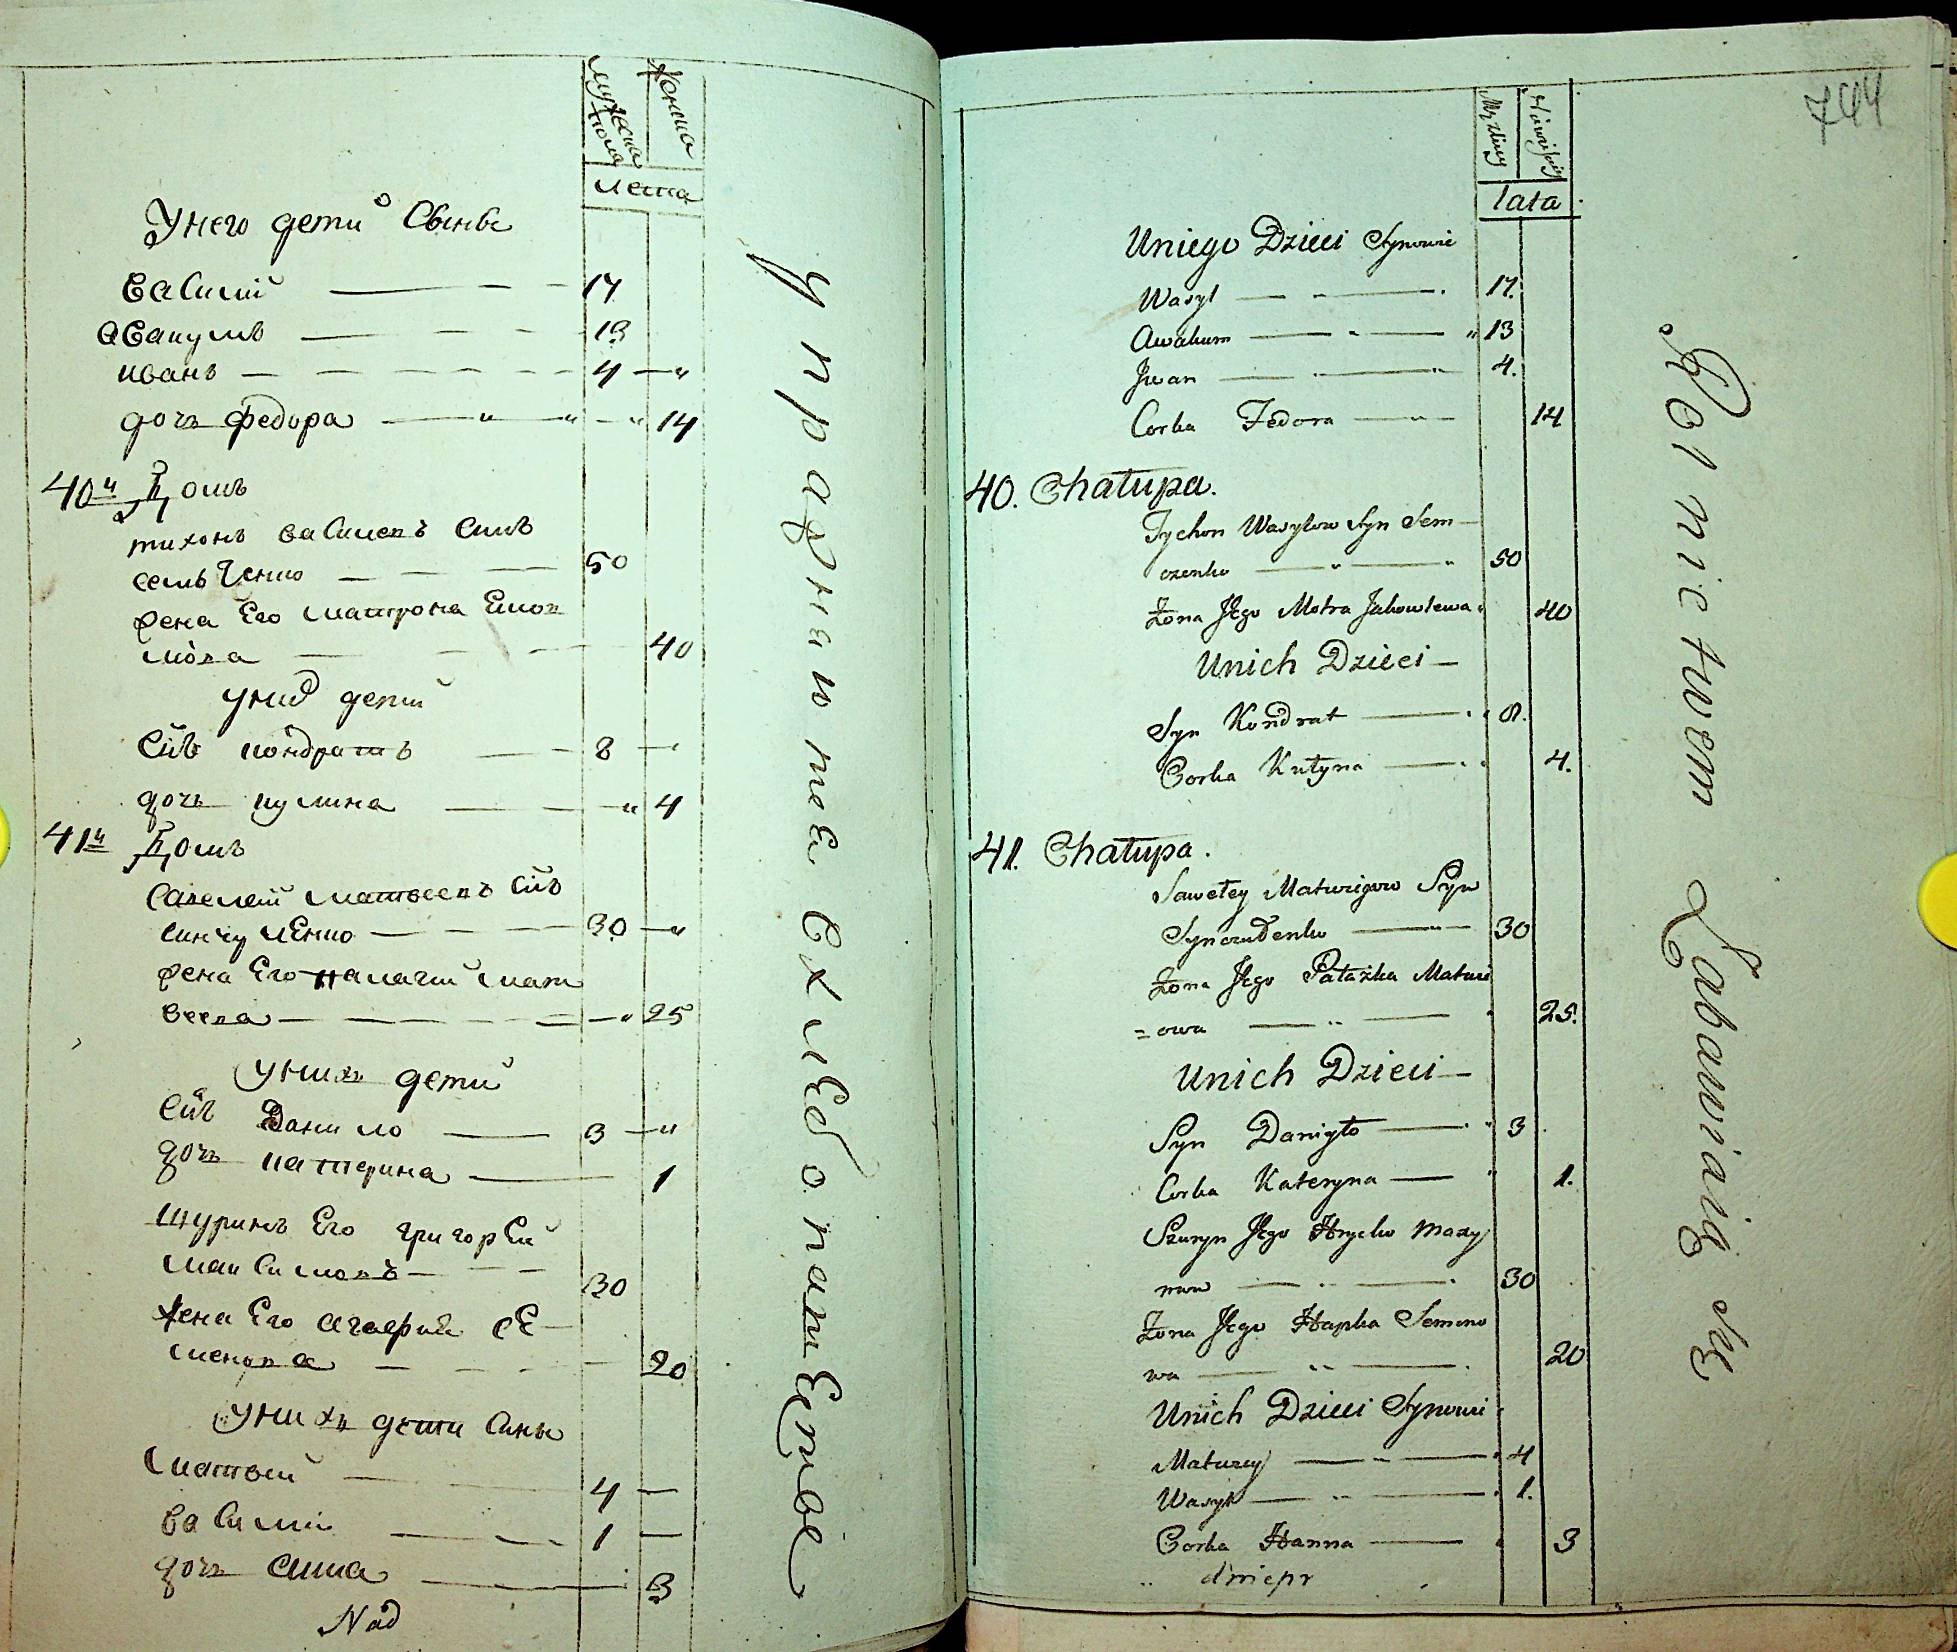 мужеска пола
женска
лета
У него дети Сынове
Василий 17
авакумъ 13
иванъ 4
дочь федора 14
40й Домъ
тихонъ васильевъ сынъ
семъченко 50
жена Его матрона Еков
лева 40
у них дети
Сынъ кондратъ 8
дочь кулина 4
41й Домъ
савелей матвеевъ сынъ
синчуленко 30
жена Его палагия мат
веева 25
у нихъ дети
Сынъ Данило 3
дочь катерина 1
Шуринъ Его григорей
максимовъ 30
жена Его агафия сЕ
менова 20
у нихъ дети сыны
Матвей 4
василий 1
дочь анна 3
Nad
упражняютеся хлебопашеством
744
Męzkiey
Żeńskiey
lata
Uniego Dzieci Synowie
Wasyl 17.
Awakum 13
Jwan 4.
Corka Fedora 14
40. Chałupa.
Tychon Wasylow Syn Sem
czenko 50
Żona Jego Motra Jakowlewa 40
Unich Dzieci
Syn Kondrat 8.
Corka Kułyna 4.
41. Chałupa.
Saweley Matwiejow Syn
Synczułenko 30
Żona Jego Pałażka Matwie
=owa 25.
Unich Dzieci
Syn Daniyło 3
Corka Kateryna 1.
Szuryn Jego Hryćko Maxy
mow 30
Żona Jego Hapka Semeno
wa 20
Unich Dzieci Synowie
Matwey 4
Wasyl 1.
Corka Hanna 3
dniepr
Rolnictwem Zabawiaią się